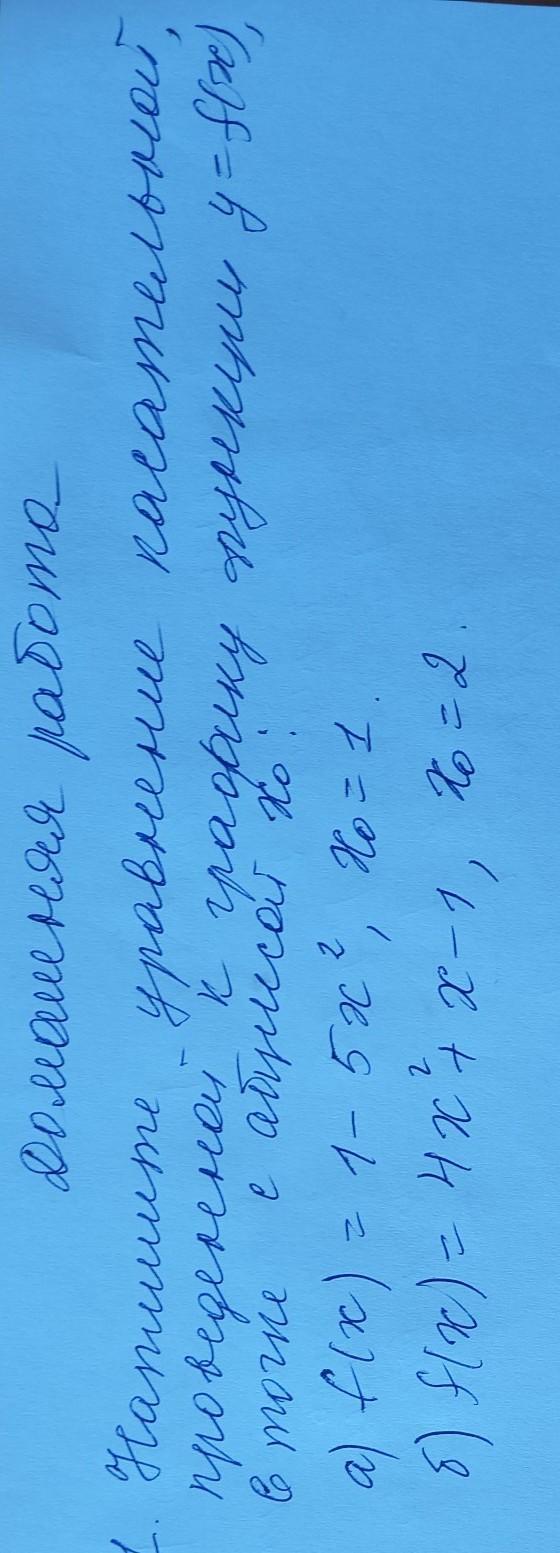 Домашняя работа
1. Напишите уравнение касательной,
проведенной к графику функции y = f(x),
в точке с абциссой x₀:
а) f(x) = 1 - 5x², x₀ = 1.
б) f(x) = 4x² + x - 1, x₀ = 2.